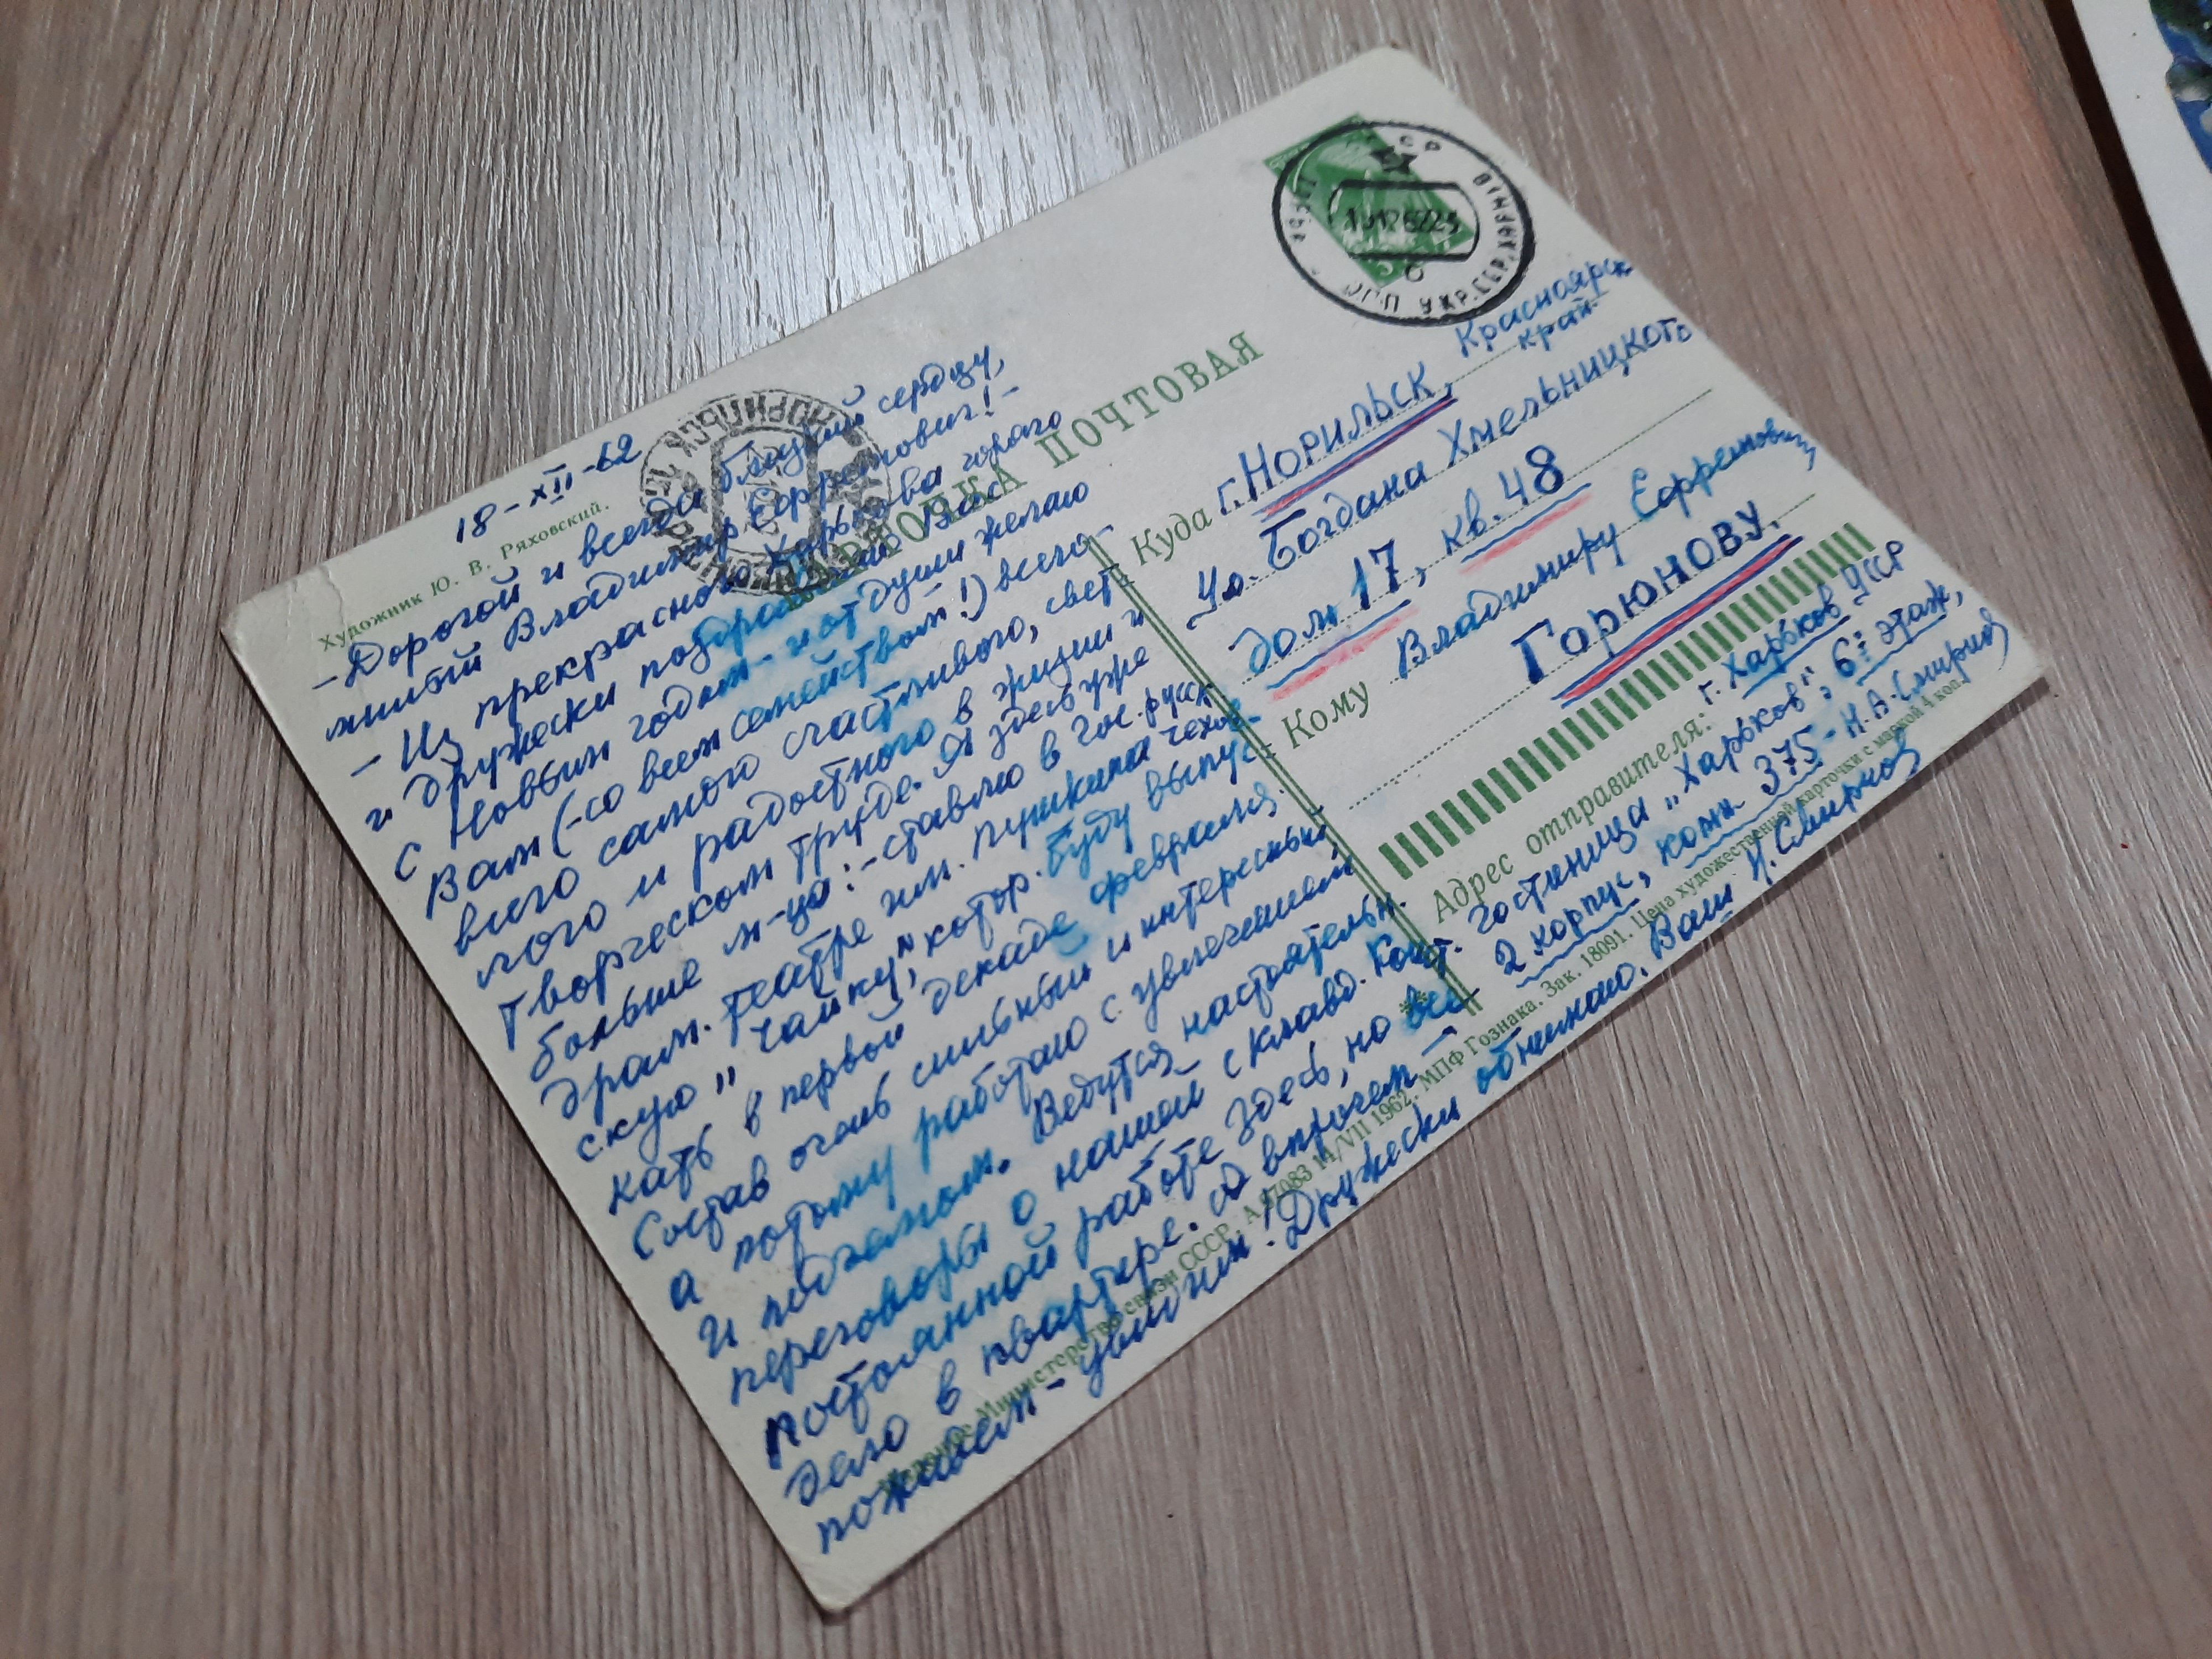 Художник Ю. В. Ряховский.
18-XII-62
-Дорогой и всегда близкий сердцу,
милый Владимир Ефремович!-
-Из прекрасного Харькова горячо
и дружески поздравляю Вас
с Новым годом-и от души желаю
Вам (-со всем семейством!) всего-
всего самого счастливого, свет
лого и радостного в жизни и
творческом труде. Я здесь уже
больше м-ца:-ставлю в Гос. русск
драм. театре им. Пушкина чехов-
скую "Чайку", котор. буду выпус
кать в первой декаде февраля.
Состав очень сильный и интересный,
а потому работаю с увлечением
и подъемом. Ведутся настоятельн.
переговоры о нашей с Клавд. Конст.
постоянной работе здесь, но все
дело в квартире. А впрочем -
поживем-увидим! Дружески обнимаю. Ваш Н. Смирнов
КАРТОЧКА ПОЧТОВАЯ
НОРИЛЬСК
УКР.ССР ХАРЬКІВ
Куда г. Норильск, Красноярск
край
Ул. Богдана Хмельницкого
дом 17, кв. 48
Кому Владимиру Ефремовичу
Горюнову.
Адрес отправителя: г. Харьков УССР
гостиница "Харьков", 6й этаж,
2 корпус, комн 375 - Н. А. Смирнов
Министерство связи СССР. 14/VII 1962. МПФ Гознака. Зак. 18091. Цена художественной карточки с маркой 4 коп.